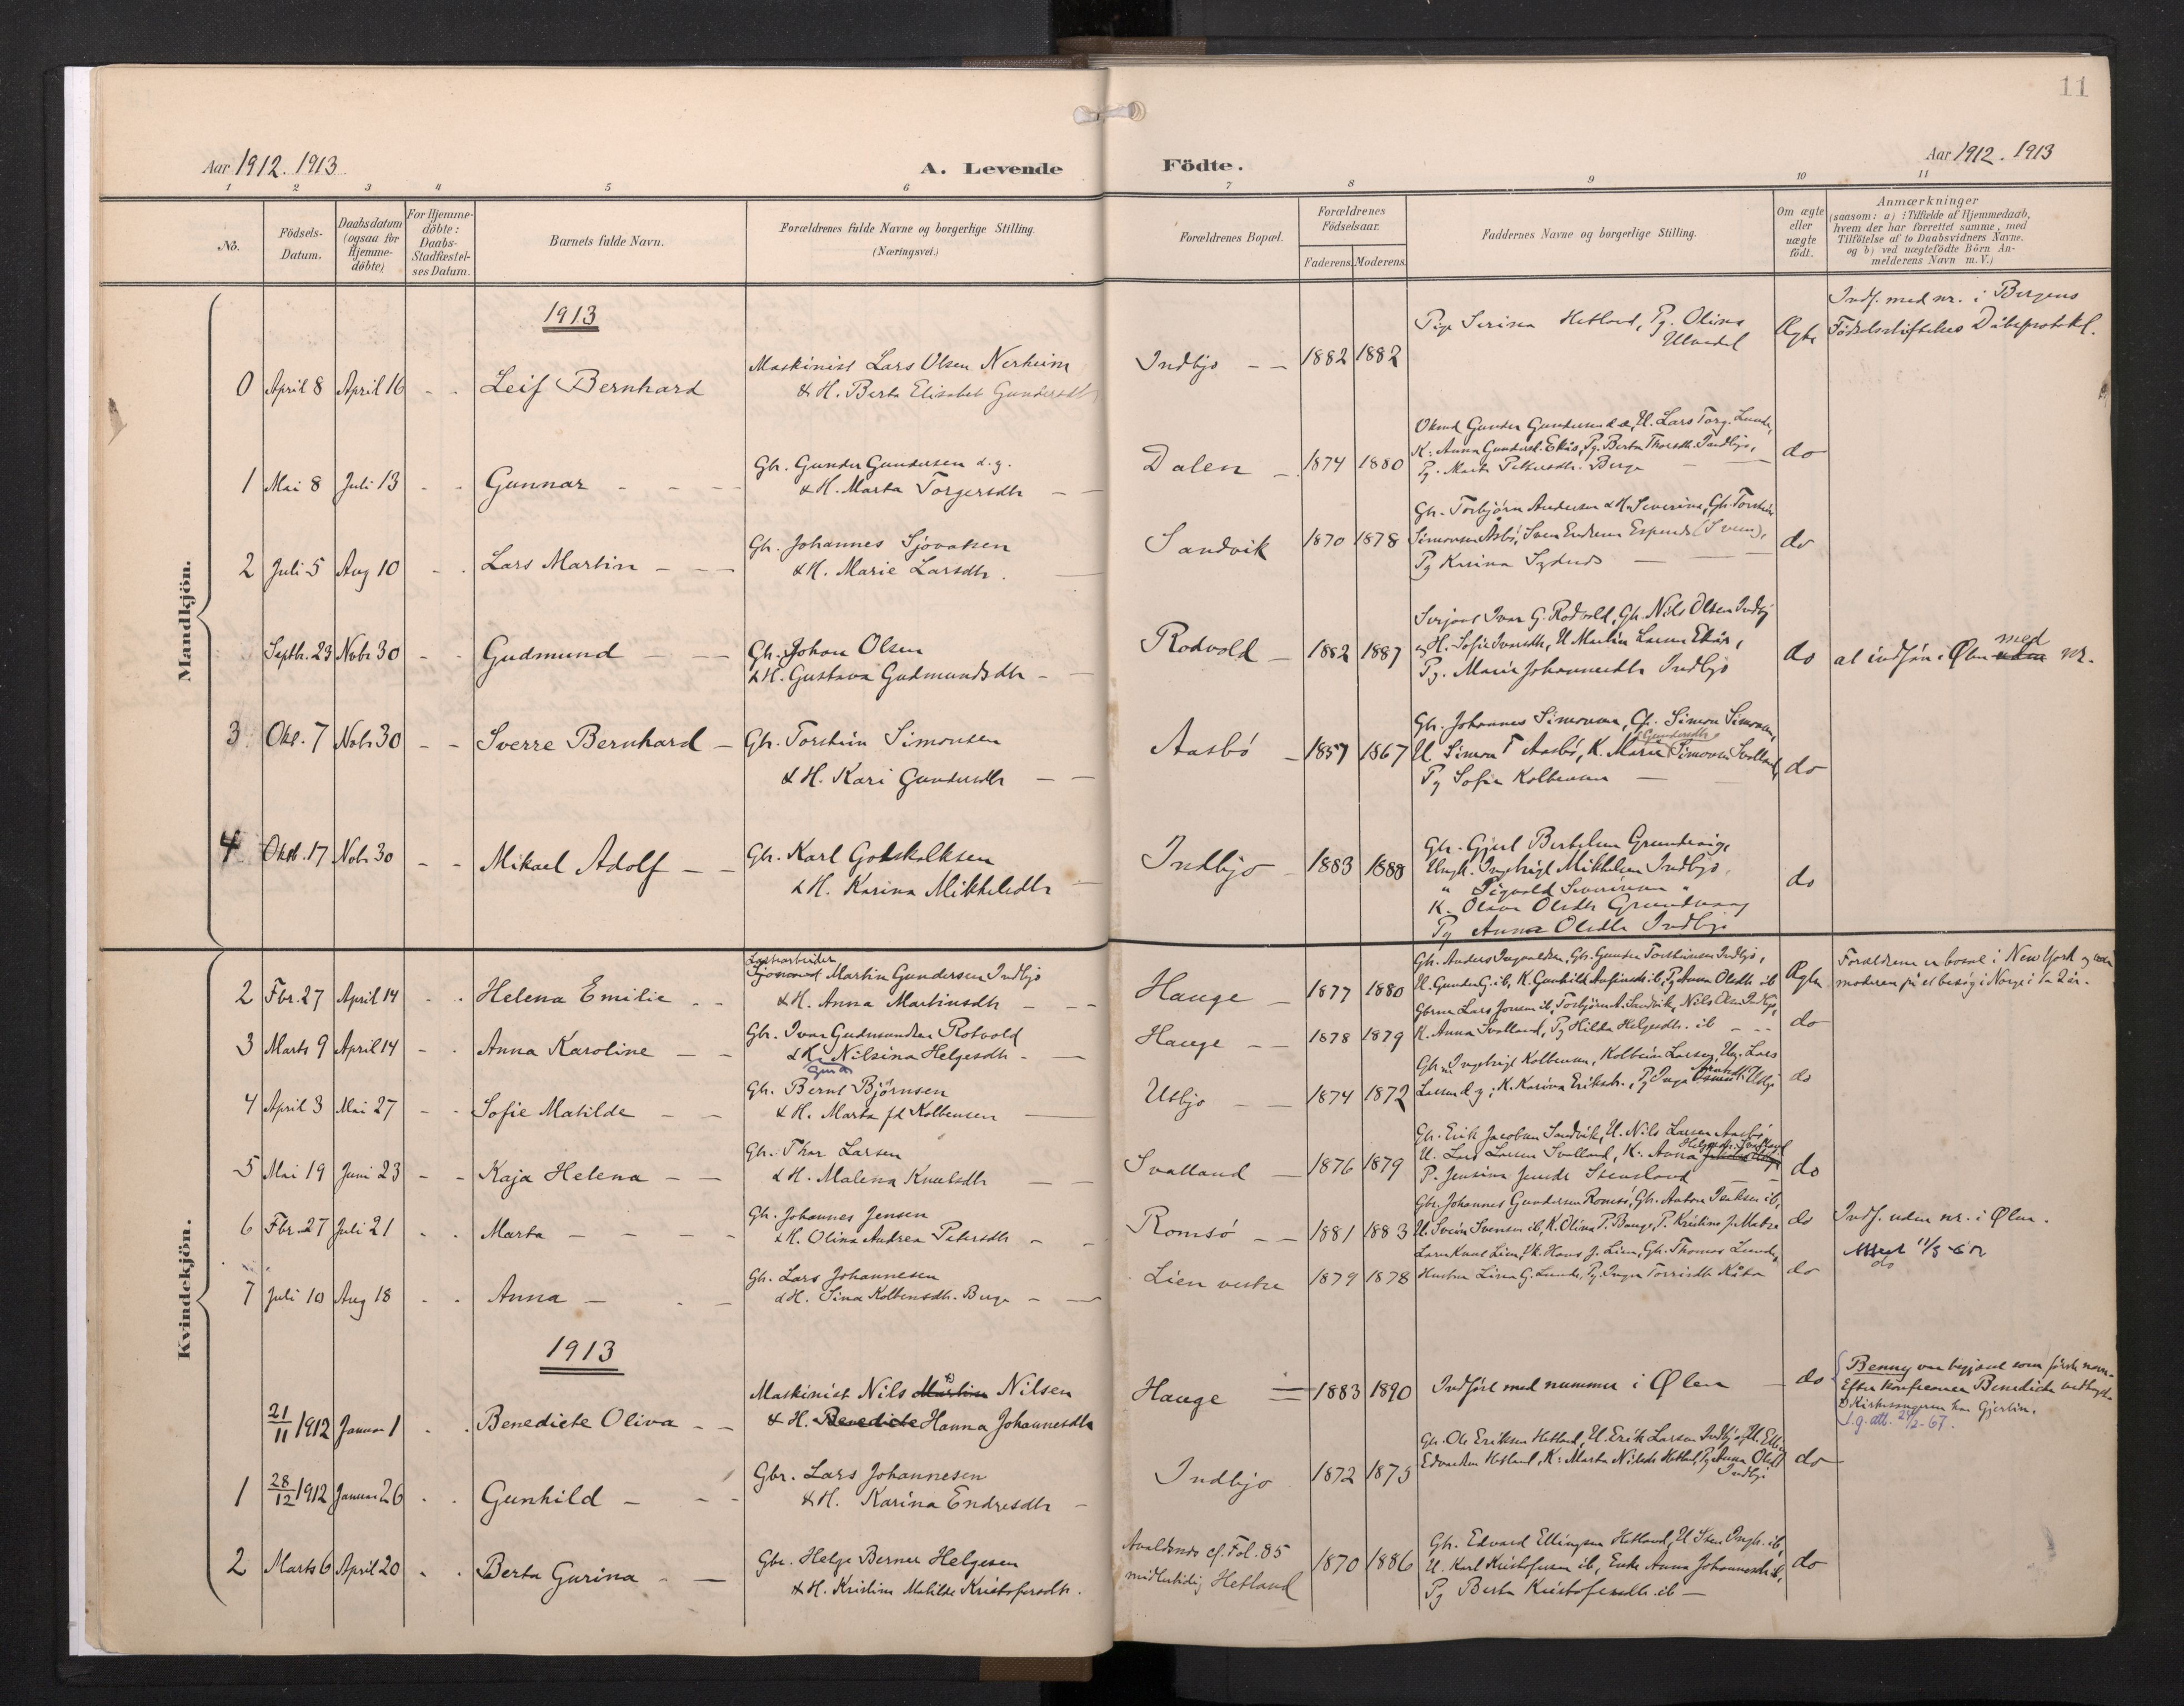 11
Aar 1912. 1913
A. Levende
Födte.
Aar 1912. 1913
1 2 3 4 5 6 7 8 9 10 11
No.
Födsels-
Datum.
Daabsdatum
(ogsaa for
Hjemme-
döbte)
For Hjemme-
döbte:
Daabs-
Stadfæstel-
ses Datum.
Barnets fulde Navn.
Forældrenes fulde Navne og borgerlige Stilling.
(Næringsvei.)
Forældrenes Bopæl.
Forældrenes
Födselsaar.
Faderens. Moderens.
Faddernes Navne og borgerlige Stilling.
Om ægte
eller
uægte
födt.
Anmærkninger
(saasom: a) i Tilfælde af Hjemmedaab,
hvem der har forrettet samme, med
Tilföielse af to Daabsvidners Navne.
og b) ved uægtefödte Börn An-
melderens Navn m.V.)
Mandkjön.
1913
0 April 8 April 16 - - Leif Bernhard
Maskinist Lars Olsen Nerheim
& H. Berta Elisabet Gundersdtr
Indbjo - - 1882 1882
Pige Serina Hetland, Pg. Olina
Ulvedal
Ægte
Indf. med nr. i Bergens
Födselsstiftelses Dåbsprotokl.
1 Mai 8 Juli 13 - - Gunnar - - -
Gbr. Gunder Gundersen d.y.
& H. Marta Torgersdtr - -
Dalen - 1874 1880
Gunder Gundersen d.æ, U. Lars Torg. Lunde,
K. Anna Gundersd. Ekås, Pg. Berta Thorsdtr. Indbjo,
Pg. Marta Pettersdtr. Berge
do
2 Juli 5 Aug 10 - - Lars Martin - - -
Gbr. Johannes Sjovatsen
& H. Marie Larsdtr.
Sandvik 1870 1878
Gbr. Torbjörn Andersen & H. Severina, Gbr. Torstein
Simonsen Åsbö, Sven Endresen (Sveen),
Pg Karina
do
Septb. 23 Nobr 30 - - Gudmund - - -
Gbr. Johan Olsen
& H. Gustava Gudmundsdtr -
Rodvold - 1882 1887
Ivar G. Rodvold, Gbr. Nils Olsen Indbj
& H. Sofie Ivarsdtr, U Martin Larsen Ekås,
Pg. Marie Johannesdtr Indbjo
do
at indföres i Ølen uden med nr.
3 Okt. 7 Nobr 30 - - Sverre Bernhard -
Gbr. Torstein Simonsen
& H. Kari Gundersdtr - -
Aasbö - 1857 1867
Gbr. Johannes Simonsen, Gbr. Simon Simonsen,
Gundersdtr
U Simon T Aasbö, K. Marie Simonsen Svolland
Pg Sofie Kolbensen
do
4 Oktb. 17 Nobr 30 - - Mikael Adolf - -
Gbr. Karl Gotskalksen
& H. Karina Mikkelsdtr
Indbjo - 1883 1888
Gbr. Gjert Bertelsen Grundevåg,
Ungk. Ingebrigt Mikkelsen Indbjo,
" Sigvald Severinsen "
K. Olava Olsdtr Grundevaag
Pg Anna Olsdtr Indbjo
do
Kvindekjön.
2 Fbr. 27 April 14 - - Helena Emilie - -
Sjomand Martin Gundersen Indbjo
& H. Anna Martinsdtr - - -
Hauge - 1877 1880
Gbr. Anders Ingvaldsen, Gbr. Gunder Torsteinsen Indbjo,
U. Gunder G. ib, K. Gunhild ib, Pg Anna Olsdtr ib
Ægte
Forældrene er bosat i New York og
moderen på et besög i Norge i 1 a 2 år.
3 Marts 9 April 14 - - Anna Karoline - -
Gbr. Ivar Gudmundsen Rotvold
& H. Nilsina Helgesdtr -
Hauge - - 1878 1879
Gbrne Lars Jonsen ib, Torbjörn A. Sandvik, Nils Olsen Indbjo,
K. Anna Svolland, Pg Hilda Helgesdtr. ib - -
do
4 April 3 Mai 27 - - Sofie Matilde - -
Gbr. Bernt Björnsen
& H. Marta f.d Kolbensen
Utbjo - - 1874 1872
Gbr. Ingebrigt Kolbensen, Kolbein Larsen, Ug. Lars
Larsen d.y., K. Karina Eriksdtr., Pg Inga Utbjo
do
5 Mai 19 Juni 23 - - Kaja Helena - -
Gbr. Thor Larsen
& H. Malena Knutsdtr - -
Svolland - 1876 1879
Gbr. Erik Jacobsen Sandvik, U. Nils Larsen Aasbö
U. Lars Larsen Svolland, K. Anna
P. Jensina Jensdtr Stensland
do
6 Fbr. 27 Juli 21 - - Marta - - - -
Gbr. Johannes Jensen
& H. Olina Andrea Petersdtr - -
Romsö - - 1881 1883
Gbr. Johannes Gundersen Romsö, Gbr. Anton ib,
U. Svein Svensen ib, K. Olina P. Bauge, P. Kristine J. Matre
do
Indf. uden nr. i Ølen.
7 Juli 10 Aug 18 - - Anna - - -
Gbr. Lars Johannesen
& H. Sina Kolbensdtr. Berge - -
Lien vestre 1879 1878
Knut Lien, Uk. Hans J. Lien, Gbr. Thomas Lunde,
Hustru Lina G. Lunde, Pg. Inga Torrisdtr Kåta
do
do
1913
21/11 1912 Januar 1 - - Benedicte Oliva - -
Maskinist Nils Martin Nilsen
& H. Benedicte Hanna Johannesdtr
Hauge = 1883 1890
Indfört med nummer i Ølen - do
Benny var begjært som förste navn.
Efter konferance Benedicte vedtaget.
Kirkesangeren har Gjertin.
f.g. att. 24/2-67.
1 28/12 1912 Januar 26 - - Gunhild - - -
Gbr. Lars Johannesen
& H. Karina Endresdtr -
Indbjo 1872 1875
Gbr. Ole Eriksen Hetland, U. Erik Larsen Indbjo, U. Elling
Edvardsen Hetland, K. Marta Nilsdtr Hetland, Pg Anna Olsdtr
Indbjo
do
2 Marts 6 April 20 - - Berta Gurina - -
Gbr. Helge Berner Helgesen
& H. Kristine Matilde Kristofersdtr.
Avaldsnes cf. Fol. 85
midlertidig Hetland
1870 1886
Gbr. Edvard Ellingsen Hetland, U Sten Ingbr. ib,
U. Karl Kristofersen ib, Enke Anna Johannesdtr ib,
Pg Berta Kristofersdtr. ib -
do